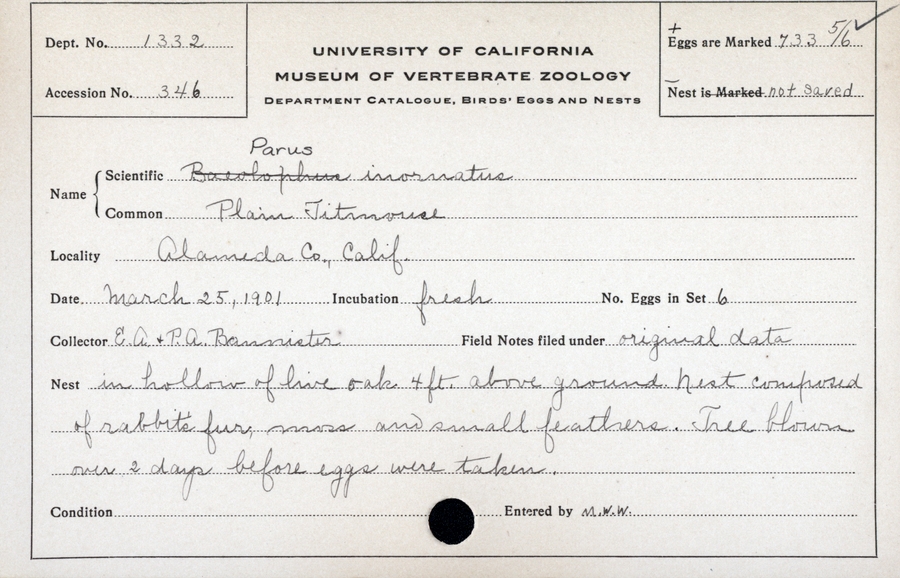 Dept. No. 1332
Accession No. 346
UNIVERSITY OF CALIFORNIA
MUSEUM OF VERTEBRATE ZOOLOGY
DEPARTMENT CATALOGUE, BIRDS' EGGS AND NESTS
+
Eggs are Marked 733 5/6 ✓
Nest is Marked not saved
Parus
Name { Scientific Baeolophus inornatus
Common Plain Titmouse
Locality Alameda Co., Calif.
Date March 25, 1901 Incubation fresh No. Eggs in Set 6
Collector E.A. & P.A. Bannister Field Notes filed under original data
Nest in hollow of live oak 4 ft. above ground. Nest composed
of rabbits fur, moss and small feathers. Tree blown
over 2 days before eggs were taken.
Condition Entered by M.W.W.